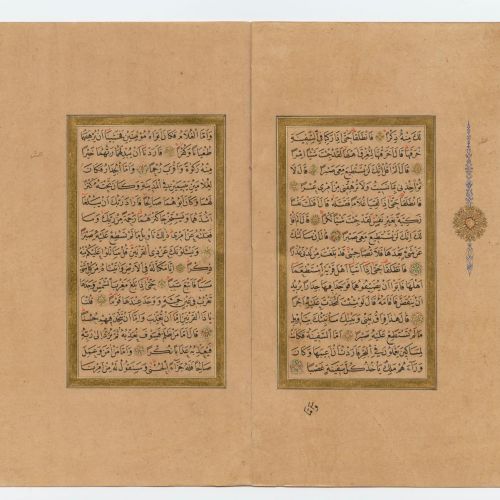 لَكَ مِنْهُ ذِكْرًا فَانْطَلَقَا حَتَّى إِذَا رَكِبَا فِي السَّفِينَةِ
خَرَقَهَا قَالَ أَخَرَقْتَهَا لِتُغْرِقَ أَهْلَهَا لَقَدْ جِئْتَ شَيْئًا إِمْرًا
قَالَ أَلَمْ أَقُلْ إِنَّكَ لَنْ تَسْتَطِيعَ مَعِيَ صَبْرًا قَالَ لَا
تُؤَاخِذْنِي بِمَا نَسِيتُ وَلَا تُرْهِقْنِي مِنْ أَمْرِي عُسْرًا
فَانْطَلَقَا حَتَّى إِذَا لَقِيَا غُلَامًا فَقَتَلَهُ قَالَ أَقَتَلْتَ نَفْسًا
زَكِيَّةً بِغَيْرِ نَفْسٍ لَقَدْ جِئْتَ شَيْئًا نُكْرًا قَالَ أَلَمْ أَقُلْ
لَكَ إِنَّكَ لَنْ تَسْتَطِيعَ مَعِيَ صَبْرًا قَالَ إِنْ سَأَلْتُكَ
عَنْ شَيْءٍ بَعْدَهَا فَلَا تُصَاحِبْنِي قَدْ بَلَغْتَ مِنْ لَدُنِّي عُذْرًا
فَانْطَلَقَا حَتَّى إِذَا أَتَيَا أَهْلَ قَرْيَةٍ اسْتَطْعَمَا
أَهْلَهَا فَأَبَوْا أَنْ يُضَيِّفُوهُمَا فَوَجَدَا فِيهَا جِدَارًا يُرِيدُ
أَنْ يَنْقَضَّ فَأَقَامَهُ قَالَ لَوْ شِئْتَ لَتَّخَذْتَ عَلَيْهِ أَجْرًا
قَالَ هَذَا فِرَاقُ بَيْنِي وَبَيْنِكَ سَأُنَبِّئُكَ بِتَأْوِيلِ
مَا لَمْ تَسْتَطِعْ عَلَيْهِ صَبْرًا أَمَّا السَّفِينَةُ فَكَانَتْ
لِمَسَاكِينَ يَعْمَلُونَ فِي الْبَحْرِ فَأَرَدْتُ أَنْ أَعِيبَهَا وَكَانَ
وَرَاءَهُمْ مَلِكٌ يَأْخُذُ كُلَّ سَفِينَةٍ غَصْبًا
وَأَمَّا
وَأَمَّا الْغُلَامُ فَكَانَ أَبَوَاهُ مُؤْمِنَيْنِ فَخَشِينَا أَنْ يُرْهِقَهُمَا
طُغْيَانًا وَكُفْرًا فَأَرَدْنَا أَنْ يُبْدِلَهُمَا رَبُّهُمَا خَيْرًا
مِنْهُ زَكَوةً وَأَقْرَبَ رُحْمًا وَأَمَّا الْجِدَارُ فَكَانَ
لِغُلَامَيْنِ يَتِيمَيْنِ فِي الْمَدِينَةِ وَكَانَ تَحْتَهُ كَنْزٌ
لَهُمَا وَكَانَ أَبُوهُمَا صَالِحًا فَأَرَادَ رَبُّكَ أَنْ يَبْلُغَا
أَشُدَّهُمَا وَيَسْتَخْرِجَا كَنْزَهُمَا رَحْمَةً مِنْ رَبِّكَ وَمَا
فَعَلْتُهُ عَنْ أَمْرِي ذَلِكَ تَأْوِيلُ مَا لَمْ تَسْطِعْ عَلَيْهِ صَبْرًا
وَيَسْئَلُونَكَ عَنْ ذِي الْقَرْنَيْنِ قُلْ سَأَتْلُوا عَلَيْكُمْ مِنْهُ
ذِكْرًا إِنَّا مَكَّنَّا لَهُ فِي الْأَرْضِ وَآتَيْنَاهُ مِنْ كُلِّ شَيْءٍ
سَبَبًا فَأَتْبَعَ سَبَبًا حَتَّى إِذَا بَلَغَ مَغْرِبَ الشَّمْسِ وَجَدَهَا
تَغْرُبُ فِي عَيْنٍ حَمِئَةٍ وَوَجَدَ عِنْدَهَا قَوْمًا قُلْنَا
يَا ذَا الْقَرْنَيْنِ إِمَّا أَنْ تُعَذِّبَ وَإِمَّا أَنْ تَتَّخِذَ فِيهِمْ حُسْنًا
قَالَ أَمَّا مَنْ ظَلَمَ فَسَوْفَ نُعَذِّبُهُ ثُمَّ يُرَدُّ إِلَى رَبِّهِ
فَيُعَذِّبُهُ عَذَابًا نُكْرًا وَأَمَّا مَنْ آمَنَ وَعَمِلَ
صَالِحًا فَلَهُ جَزَاءً الْحُسْنَى وَسَنَقُولُ لَهُ مِنْ أَمْرِنَا